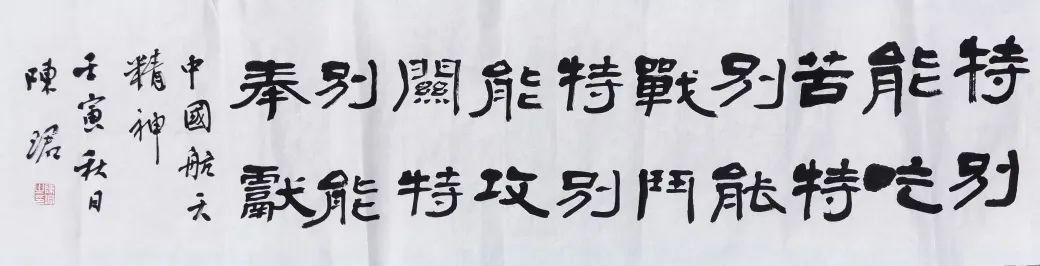 特别
能吃
苦特
别能
戰鬥
特别
能攻
關特
别能
奉獻
中國航天
精神
壬寅秋日
陳